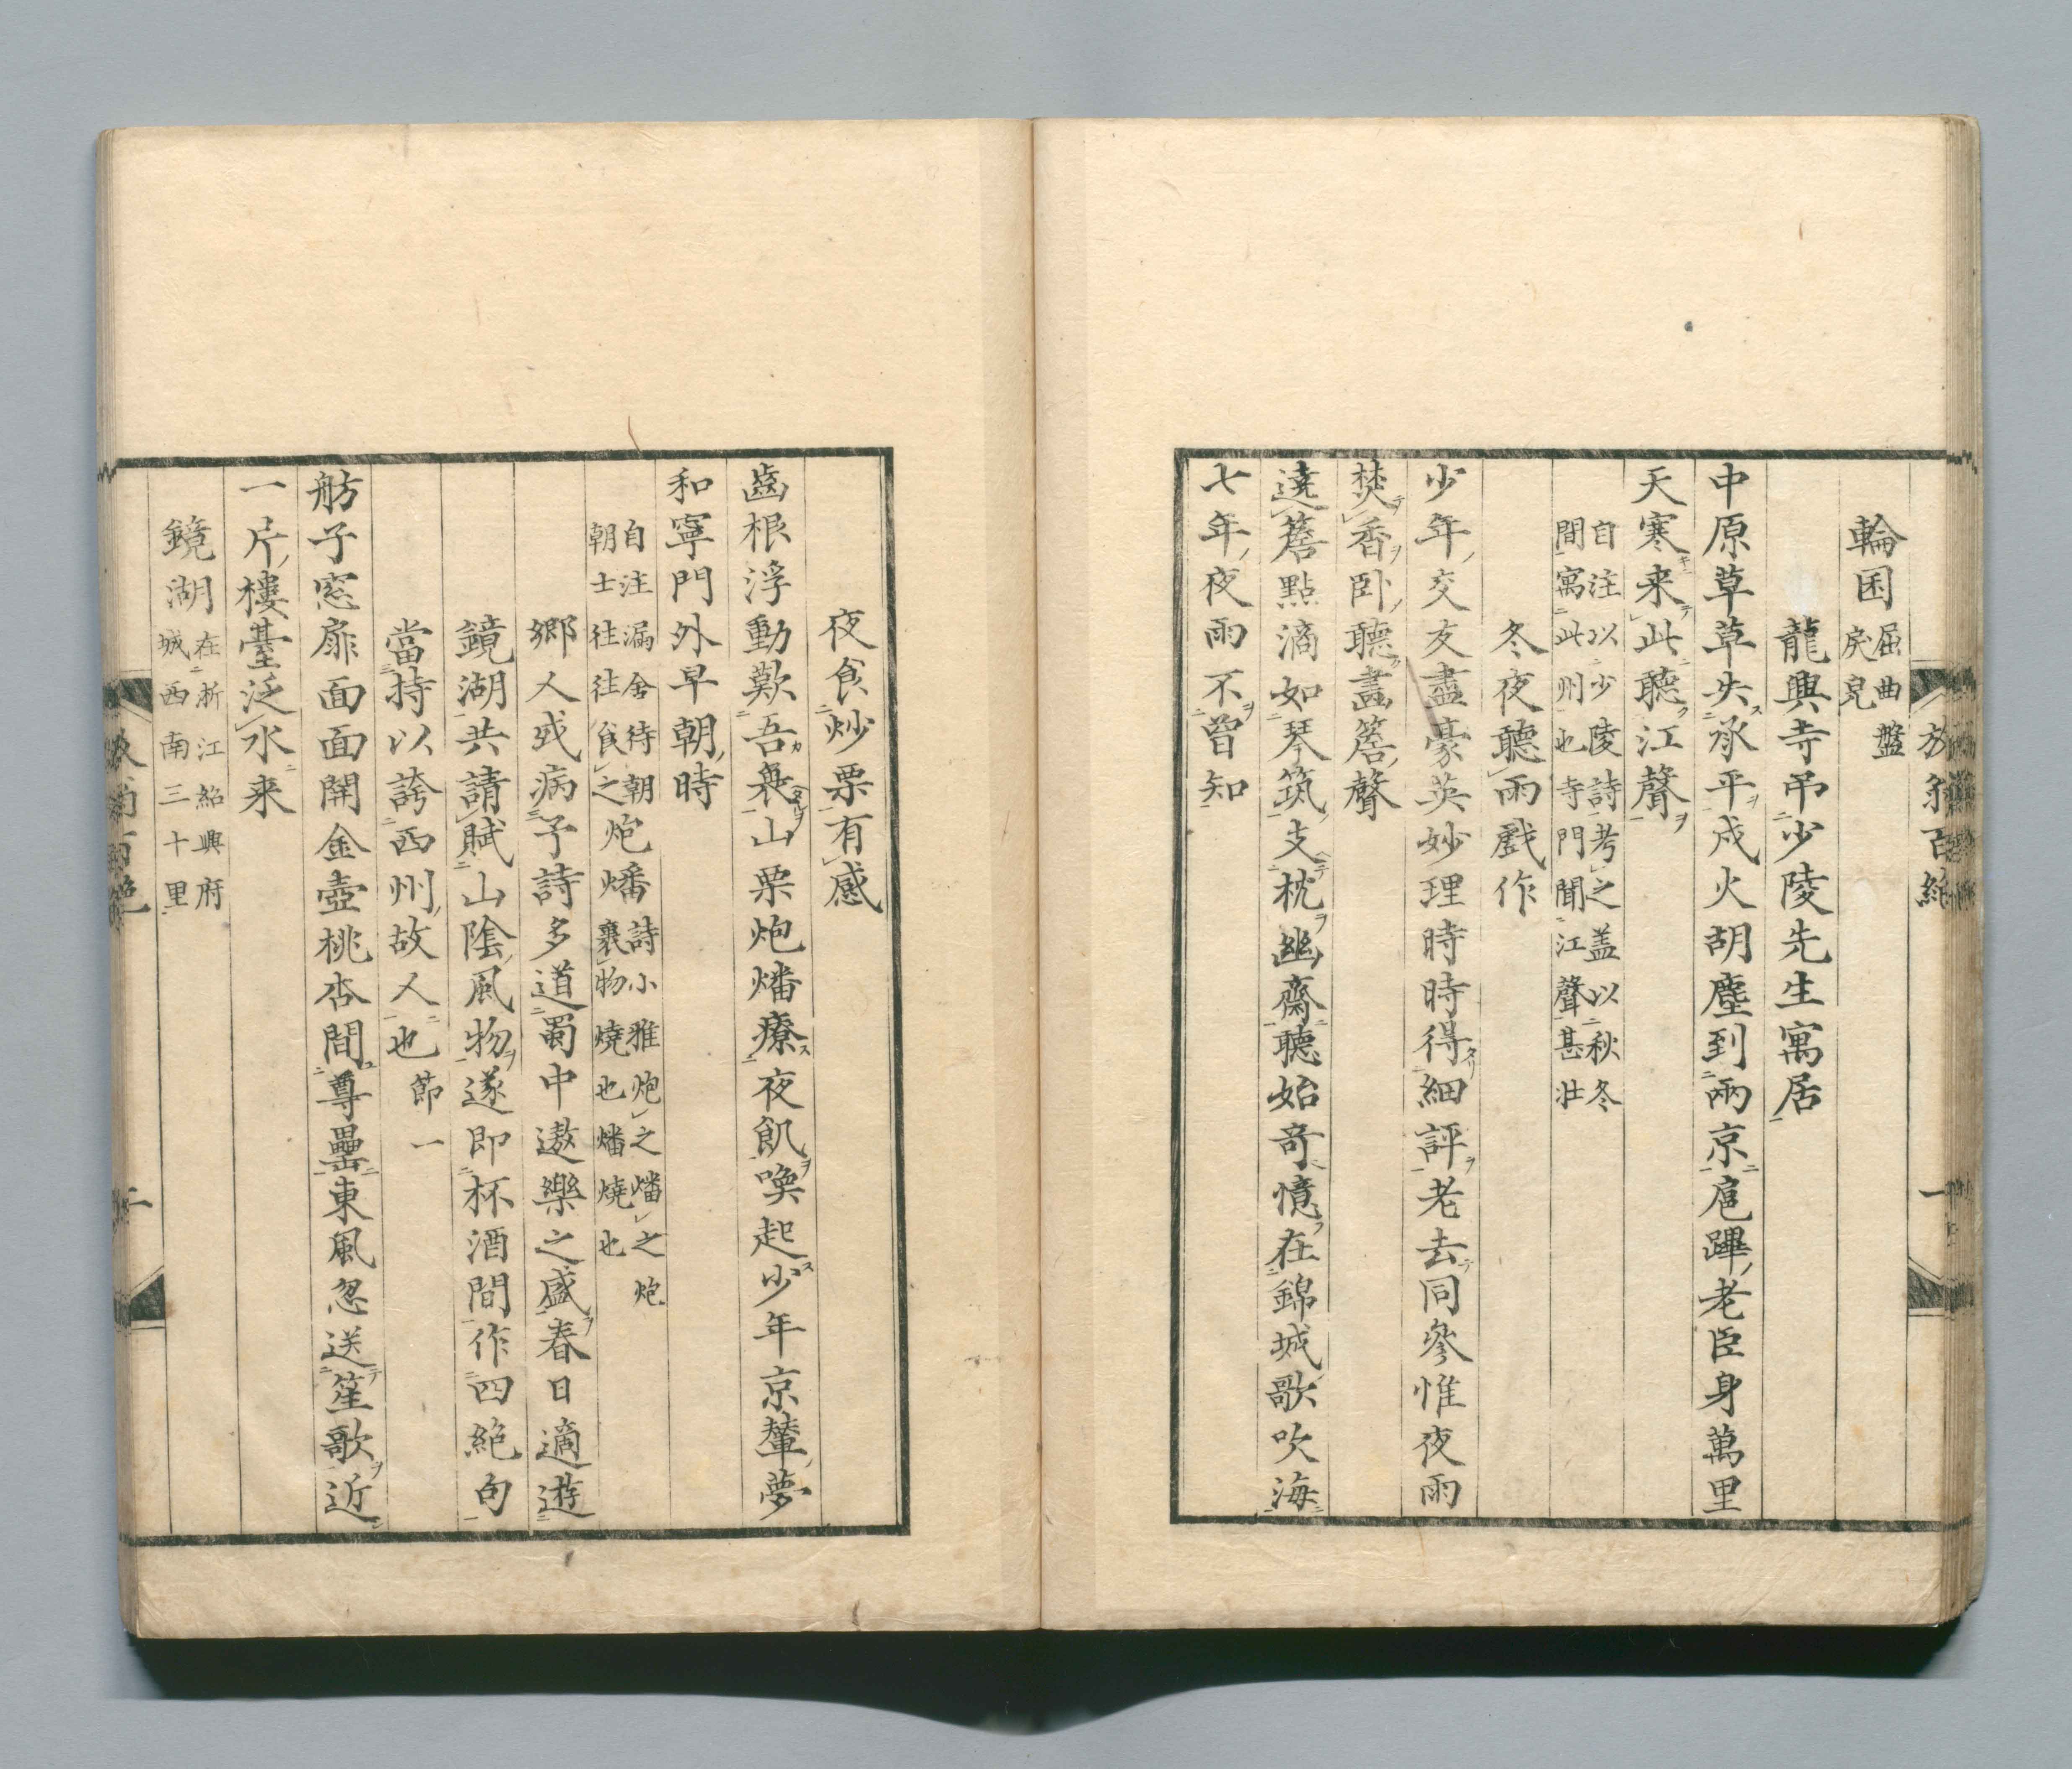 放翁百絶
一
輪囷屈曲盤
戻皃
龍興寺吊少陵先生寓居
中原草草失承平戍火胡塵到兩京扈蹕老臣身萬里
天寒来此聽江聲
自注以少陵詩考之盖以秋冬
間寓此州也寺門聞江聲甚壮
冬夜聽雨戲作
少年交友盡豪英妙理時時得細評老去同參惟夜雨
焚香卧聽畵簷聲
遶簷點滴如琴筑支枕幽齋聽始竒憶在錦城歌吹海
七年夜雨不曽知
夜食炒栗有感
齒根浮動歎吾衰山栗炮燔療夜飢喚起少年京輦夢
和寧門外早朝時
自注漏舍待朝
朝士往往食之
炮燔詩小雅炮之燔之炮
裹物燒也燔燒也
鄉人或病予詩多道蜀中遨樂之盛春日適遊
鏡湖共請賦山陰風物遂即杯酒間作四絶句
當持以誇西州故人也節一
舫子窓扉面面開金壺桃杏間尊罍東風忽送笙歌近
一片樓臺泛水来
鏡湖在浙江紹興府
城西南三十里